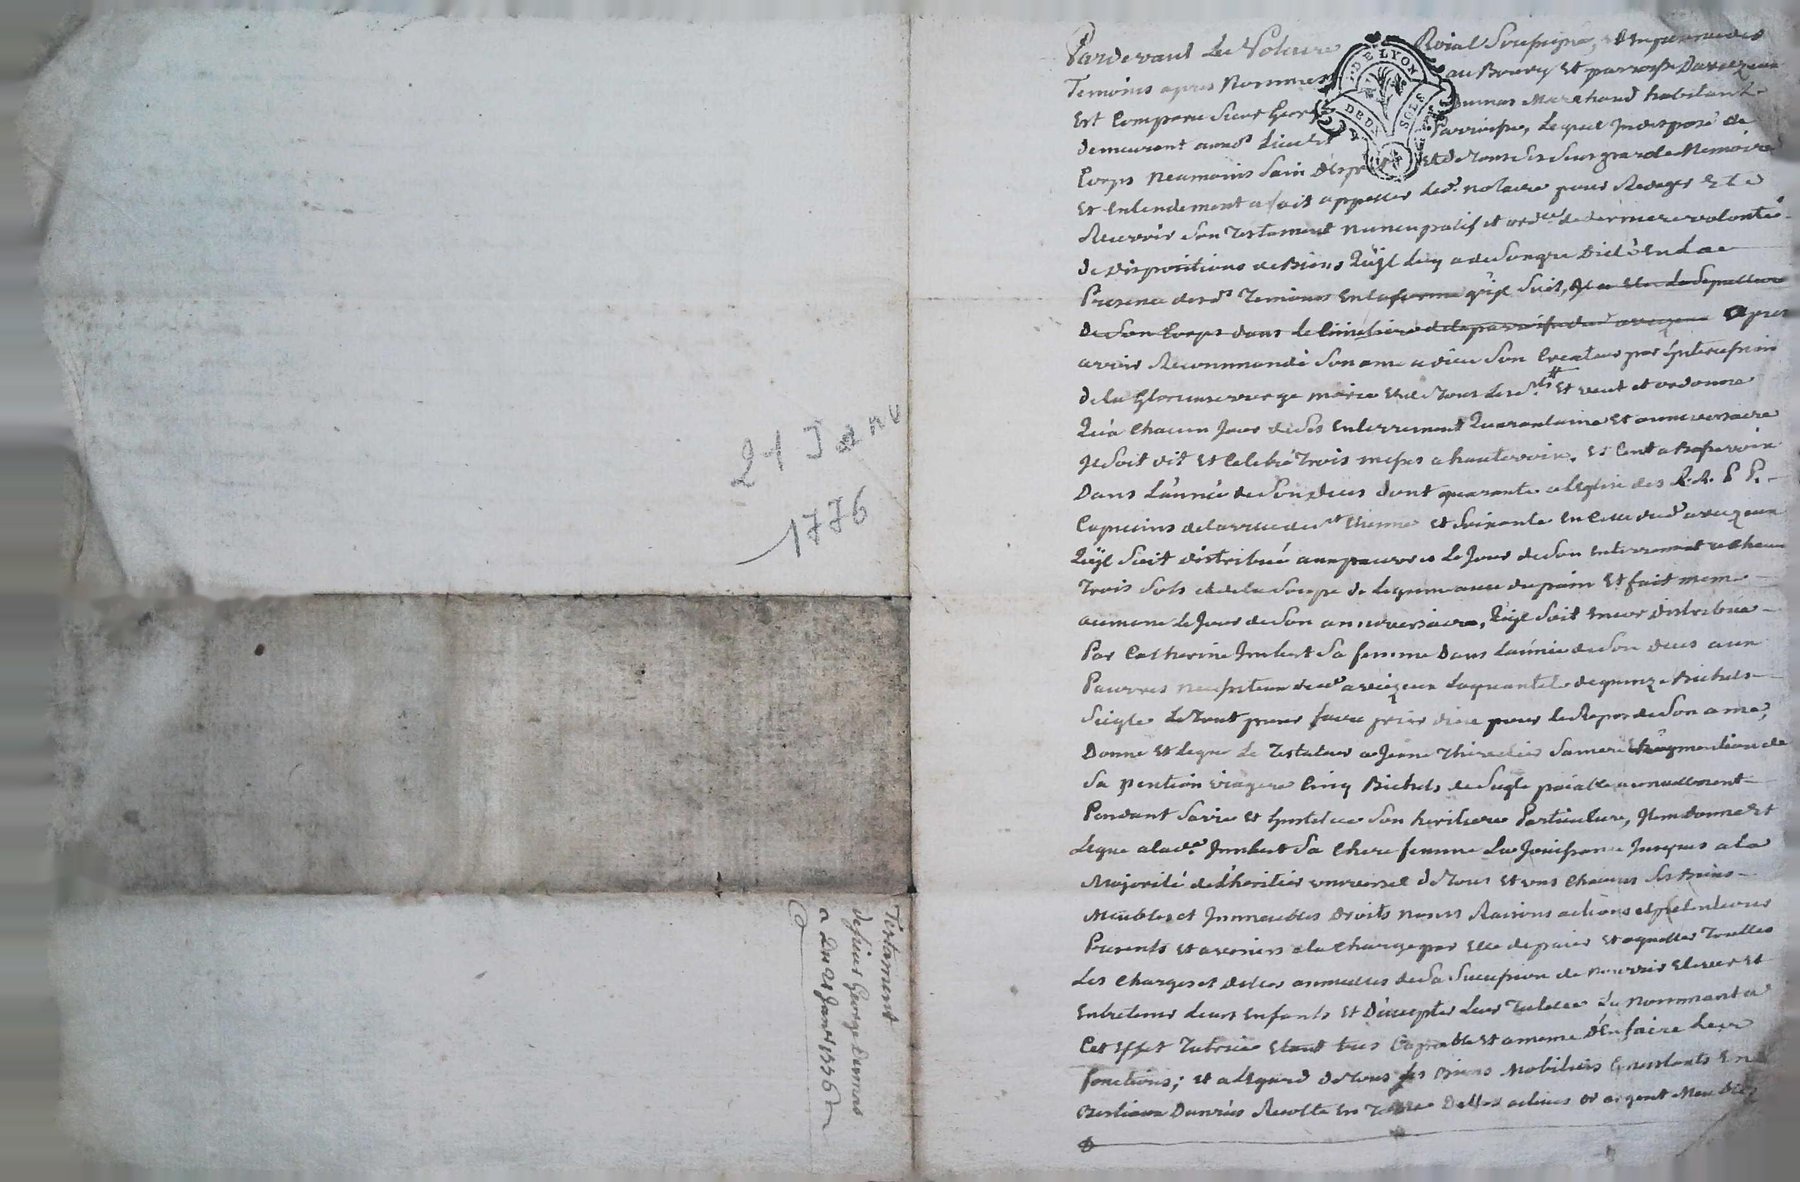 21 Janv
1776
Testament
de sieur George Dumas
a Du 21 Janv 1776
DE LYON
DEUX SOLS
Pardevant Le Notaire Roial Soussigné, et En presence des
Temoins apres Nommes au Bourg Et parroisse Davezieux
Est Comparu Sieur George Dumas Marchand habitant
demeurant aud lieu Et Parroisse, Lequel Indisposé de
Corps Neamoins Sain Desprit Et de Tous Ses Sens Memoire
Et Entendement a fait appeller led. Notaire pour Rediger Et
Recevoir Son Testament Nuncupatif et de derniere volonté
de dispositions de Biens Quÿl luy a de Son gre Dicté En La
Presence desd Temoins En la forme qúÿl Suit, Sepulture
De Son Corps dans le Cimetiere de la parroisse dud avezieux Apres
avoir Recommandé Son ame a dieu Son Createur par Intercession
de la Glorieuse vierge Marie Et de Tous Les Sts Et veut et ordonne
Qúa Chacun Jour de Ses Enterrement Quarantaine Et anniversaire
Il Soit dit Et Celebré Trois messes a haute voix, Et Cent a Basse voix
Dans L'année de Son deces dont quarante a l'eglise des R. R. P. P.
Capucins de St Etienne Et Soixante En Celle dud avezieux
Quÿl Soit distribué aux pauvres Le Jour de Son Enterrement a Chacun
Trois Sols et de la Soupe de Legume avec du pain Et fait meme
aumone Le Jour de Son anniversaire, Quÿl Soit Encor distribué
Par Catherine Imbert Sa femme Dans L'année de Son deces aux
Pauvres dud avezieux La quantité de quinze Bichets
Seigle Le Tout pour faire prier dieu pour le Repos de Son ame,
Donne Et Legue Le Testateur a Jeanne Sa mere En augmentation de
Sa pention viagere Cinq Bichets de Seigle paiable annuellement
Pendant Sa vie Et Institue Son heritiere Particuliere, Item donne Et
Legue a lad. Imbert Sa Chere femme La Jouissance Jusques a la
Majorité de L'heritier universel de Tous Et uns Chacuns Ses Biens
Meubles et Immeubles Droits Noms Raisons actions et pretentions
Presents Et avenirs a la Charge par Elle de paier Et aquitter Toutes
Les Charges et dettes annuelles de Sa Succession de Nourrir Elever Et
Entretenir Leurs Enfants Et D'accepter Leur Tutelle La Nommant a
Cet Effet Tutrice Etant tres Capable Et a meme D'En faire Les
fonctions; Et a L'Egard de Tous Ses Biens Mobiliers Consistants En
Bestiaux Danrées Recolte En Terre Dettes actives or argent Meubles